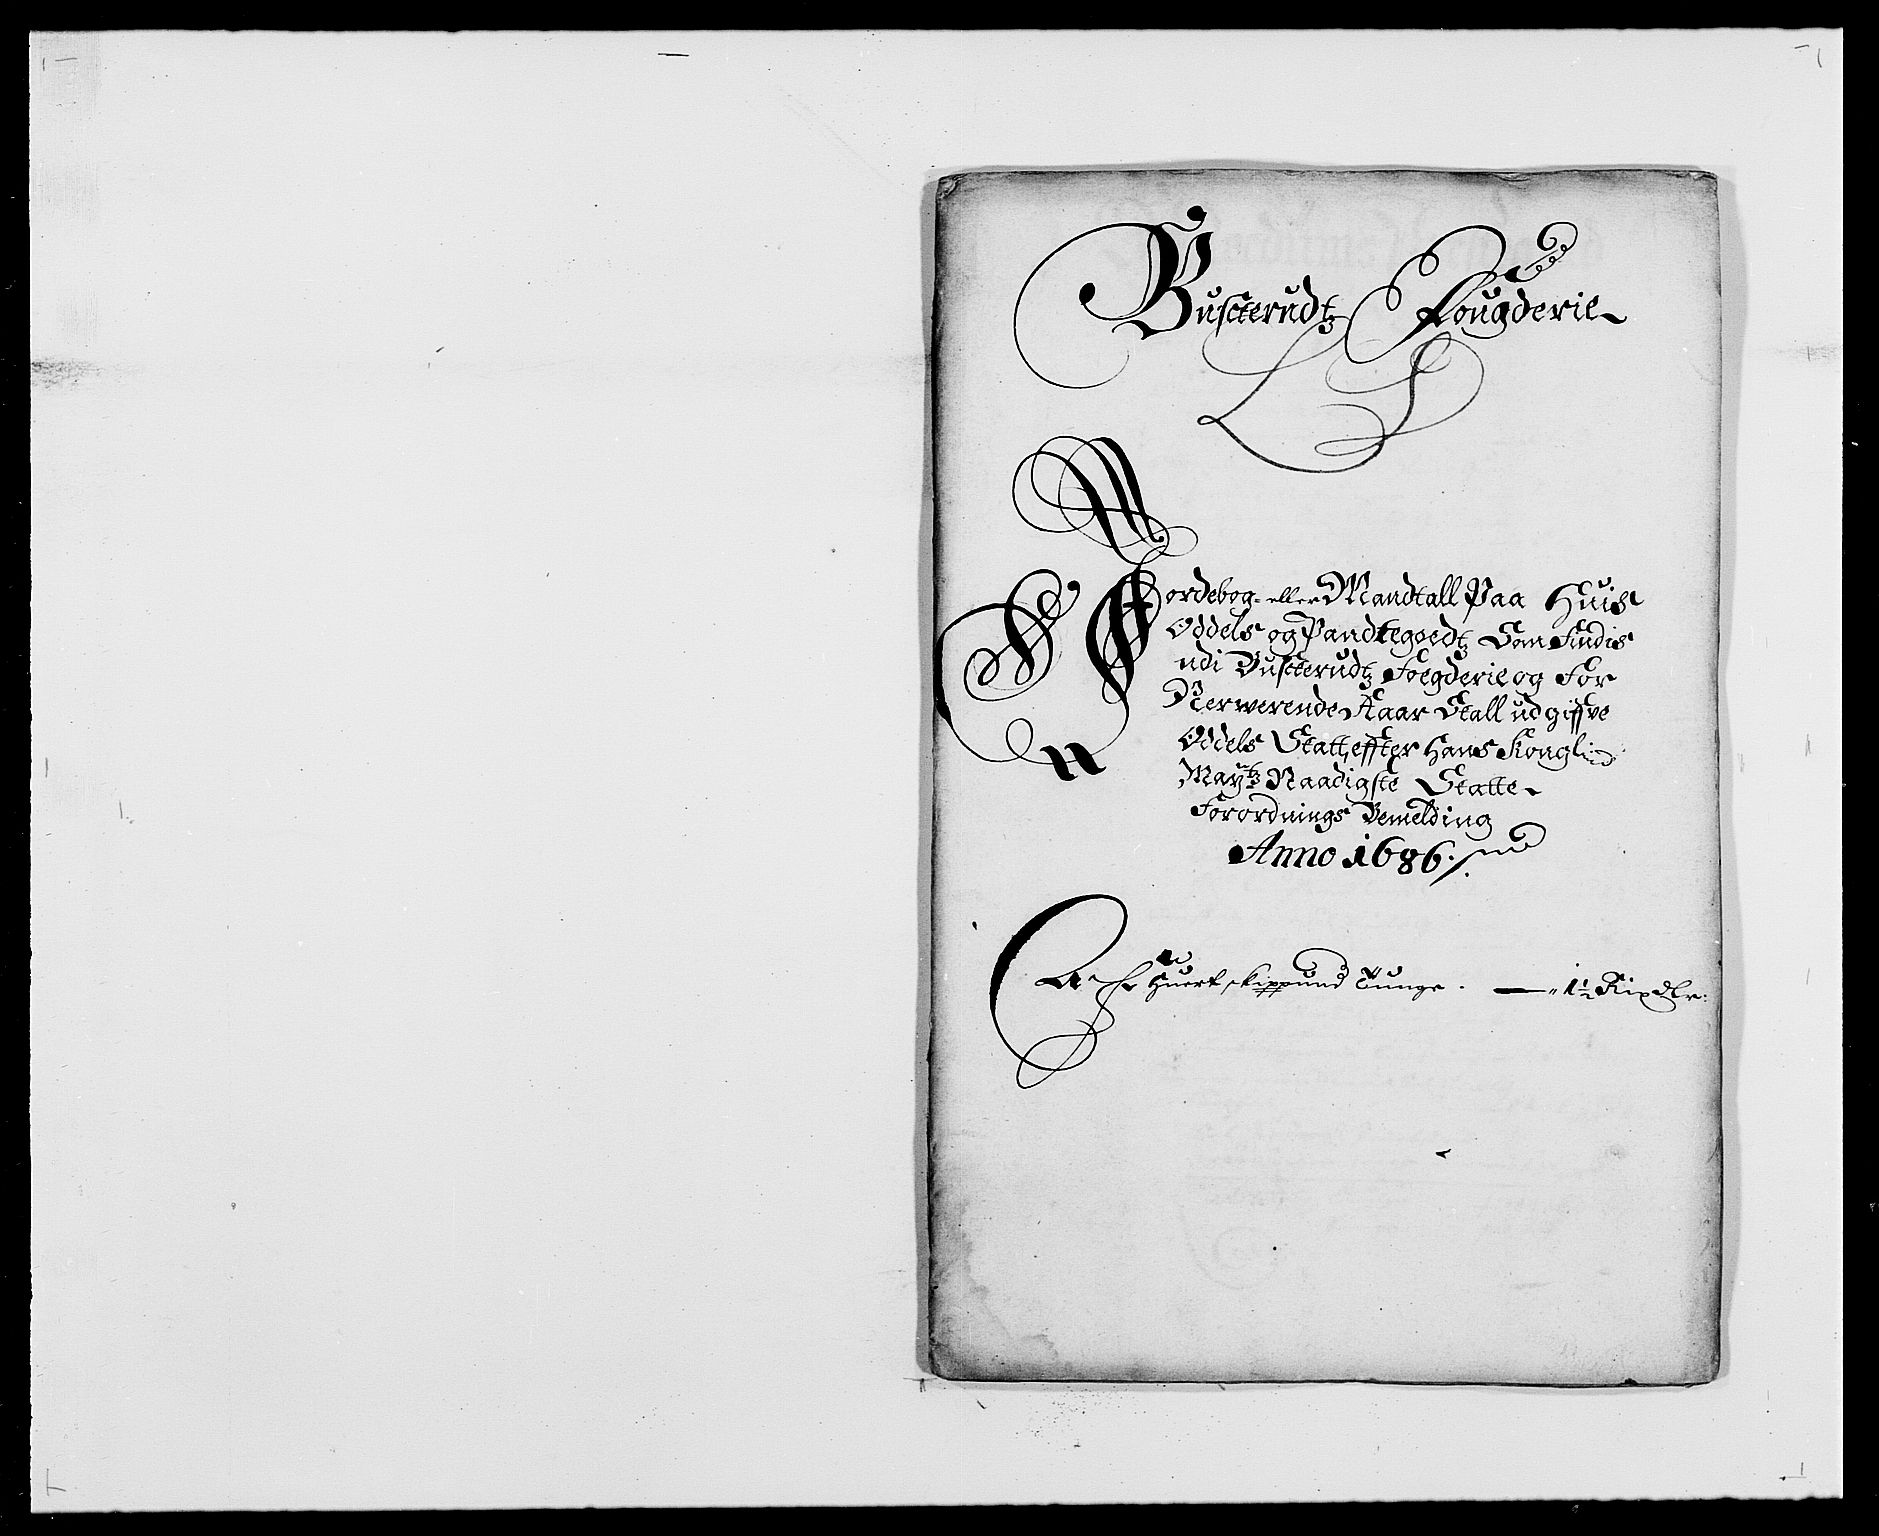 Buscterudtz Fougderie
Jordebog eller Mandtall Paa Huis
Oddels og Pandtegoedtz Som Findis
udi Buscterudtz Foegderie og For
Nerwerende Aaar Skall udgiffve
Oddels Skatt, effter Hans Kongl:
Maytz Naadigste Skatte
Forordnings Bemelding
Anno 1686.
Aff Huert skippund Tunge. — 1½ Rixdlr: